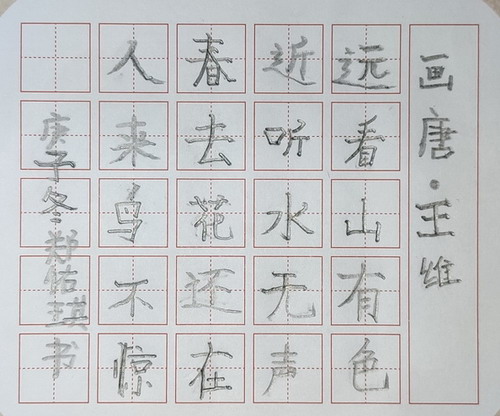 画唐·王维
远看山有色
近听水无声
春去花还在
人来鸟不惊
庚子冬郑佑琪书